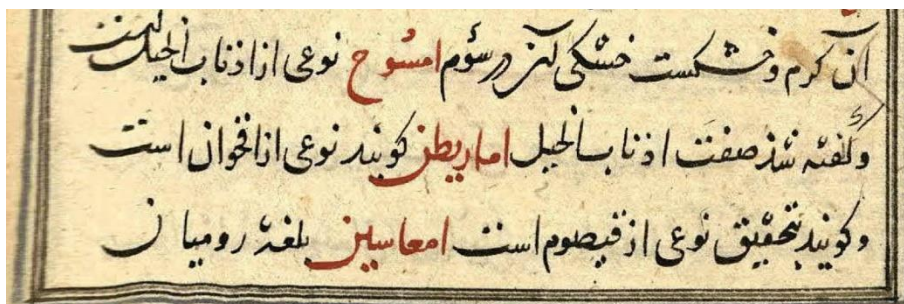 آن کرم و خشکست خشکی آن در سؤم امسوح نوعی از اذناب الخیل است
و گفته شد صفت اذناب الخیل اماریطن کویند نوعی از اقحوان است
و کویند بتحقیق نوعی از قیصوم است امعاسین بلغة رومیان